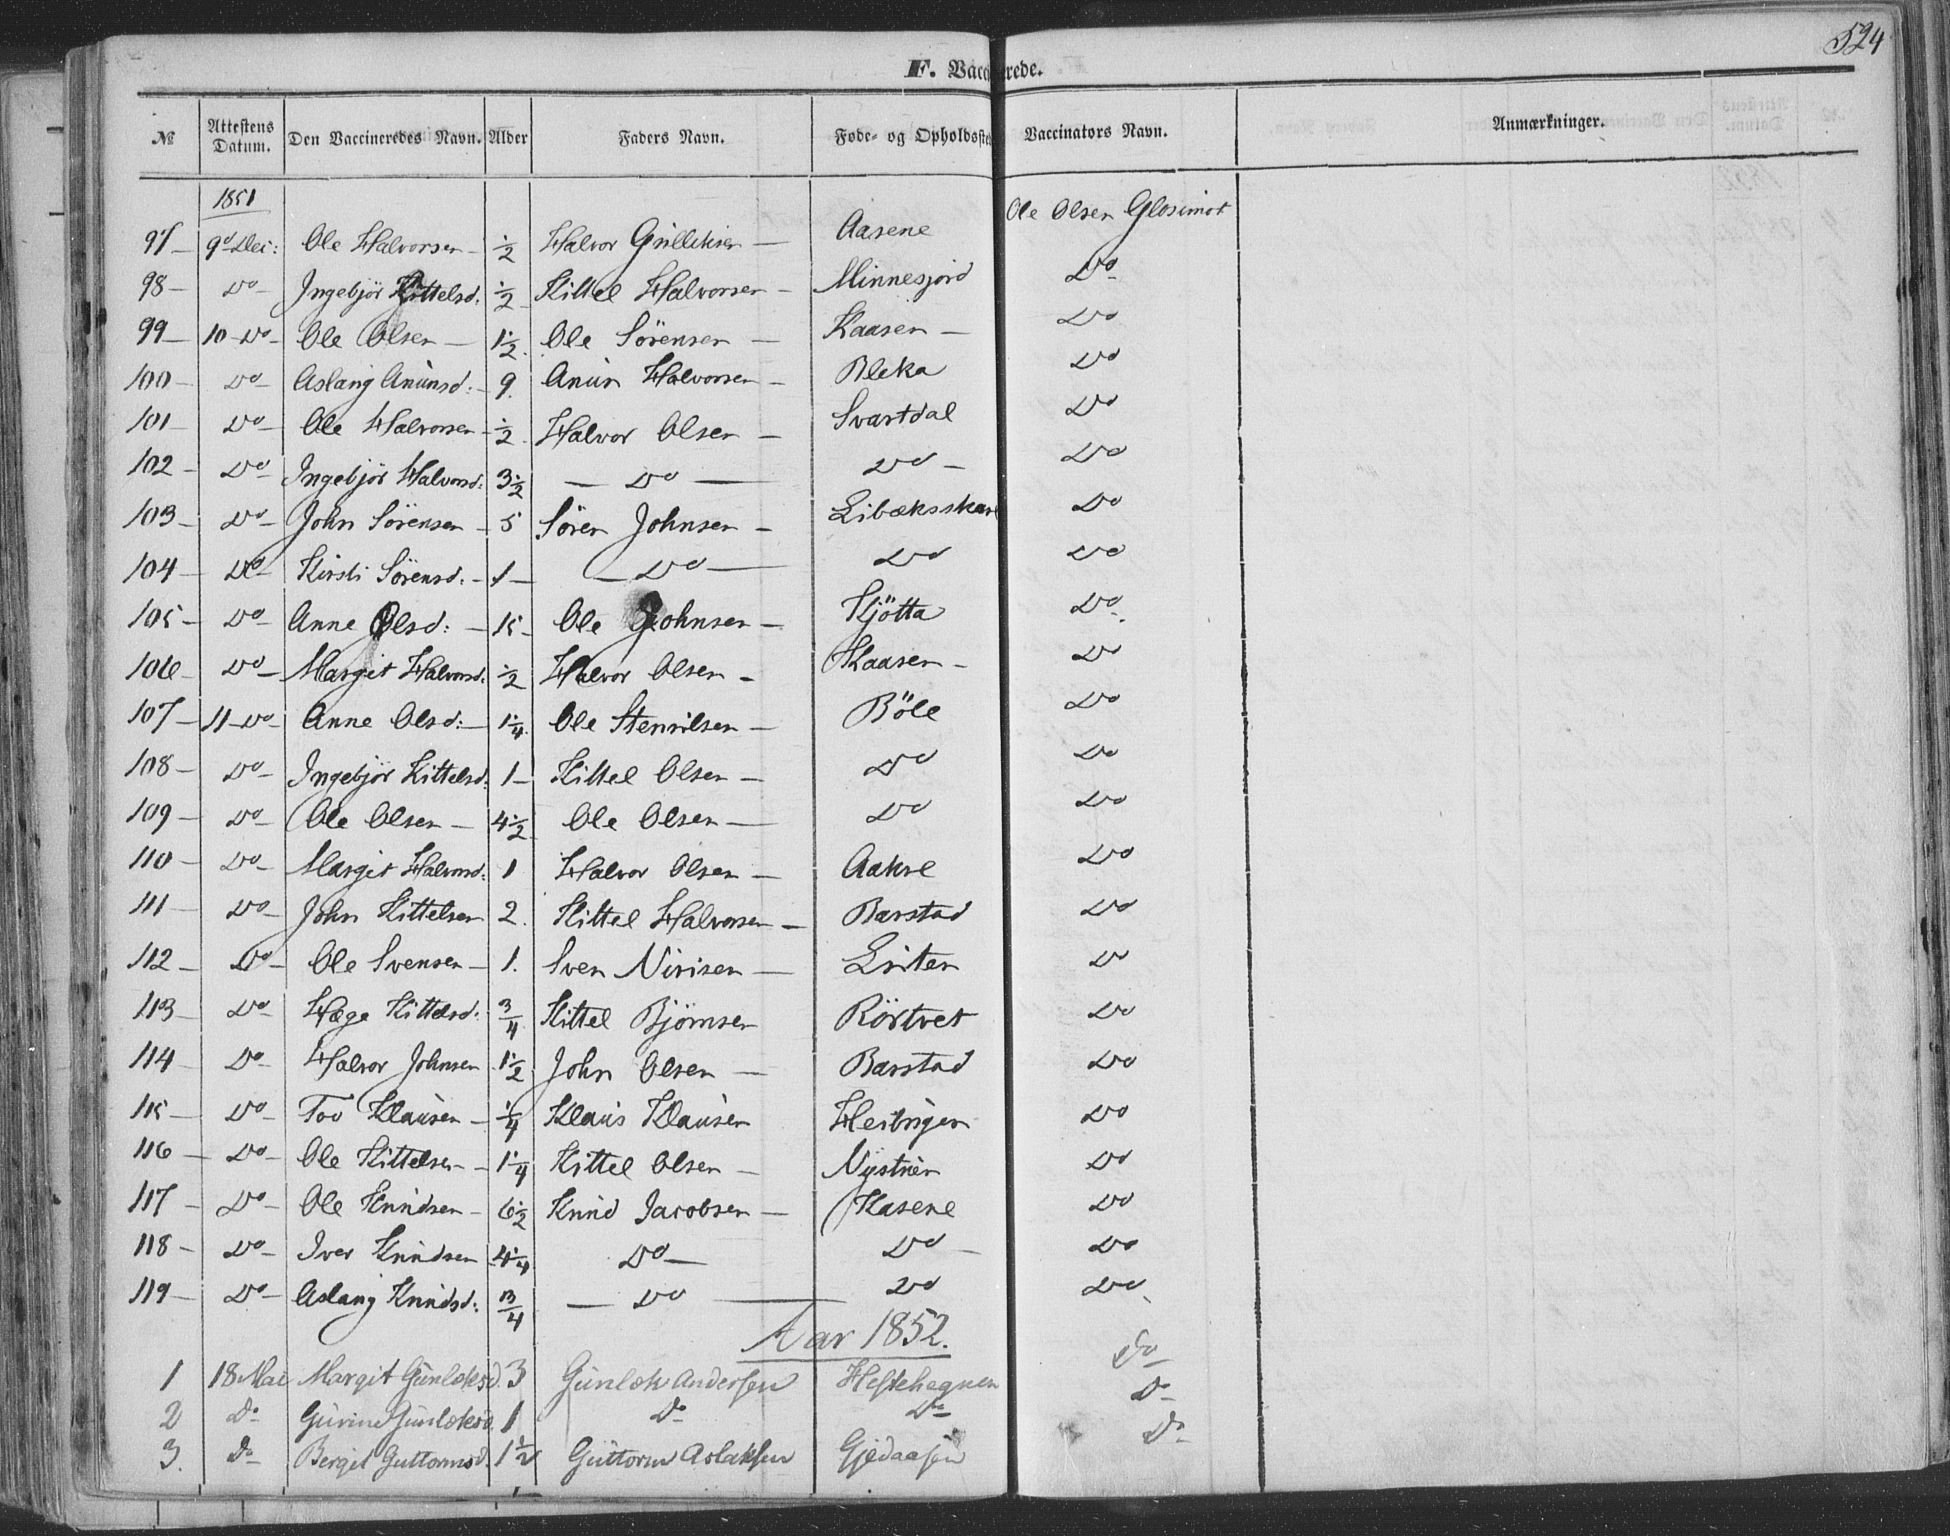 524
F. Vaccinerede.
№ | Attestens Datum. | Den Vaccineredes Navn. | Alder | Faders Navn. | Føde- og Opholdssted | Vaccinators Navn. | Anmærkninger.
1851
97 | 9d Dec: | Ole Halvorsen | ½ | Halvor Gulliksen | Aasene | Ole Olsen Glosimot
98 | Do | Ingebjör Kittelsd: | ½ | Kittel Halvorsen | Minnesjord | Do
99 | 10 Do | Ole Olsen | 1½ | Ole Sörensen | Kaasen | Do
100 | Do | Aslaug Anunsd: | 9 | Anun Halvorsen | Bleka | Do
101 | Do | Ole Halvorsen | ½ | Halvor Olsen | Svartdal | Do
102 | Do | Ingebjör Halvorsd: | 3½ | Do | Do | Do
103 | Do | John Sörensen | 5 | Sören Johnsen | Libæksskaar | Do
104 | Do | Kirsti Sörensd: | 1 | Do | Do | Do
105 | Do | Anne Olsd: | 15 | Ole Johnsen | Kjötta | Do
106 | Do | Margit Halvorsd: | ½ | Halvor Olsen | Kaasen | Do
107 | 11 Do | Anne Olsd: | 1¼ | Ole Stenulsen | Böle | Do
108 | Do | Ingebjör Kittelsd: | 1 | Kittel Olsen | Do | Do
109 | Do | Ole Olsen | 4½ | Ole Olsen | Do | Do
110 | Do | Margit Halvorsd: | 1 | Halvor Olsen | Aakre | Do
111 | Do | John Kittelsen | 2. | Kittel Halvorsen | Barstad | Do
112 | Do | Ole Svensen | 1. | Sven Nirisen | Do
113 | Do | Hæge Kittelsd: | ¾ | Kittel Björnsen | Rörtvet | Do
114 | Do | Halvor Johnsen | 1½ | John Olsen | Barstad | Do
115 | Do | Tov Klausen | ¼ | Klaus Klausen | Do
116 | Do | Ole Kittelsen | 1¼ | Kittel Olsen | Nystuen | Do
117 | Do | Ole Knudsen | 6½ | Knud Jacobsen | Kasene | Do
118 | Do | Iver Knudsen | 4¼ | Do | Do | Do
119 | Do | Aslaug Knudsd: | ¾ | Do | Do | Do
Aar 1852.
1 | 18 Mai | Margit Gunleksd. | 3 | Gunlek Andersen | Heftehaguen | Do
2 | Do | Gurine Gunleksd. | 1 | Do | Do | Do
3. | Do | Bergit Guttormsd. | 1½ | Guttorm Aslaksen | Gjedaasen | Do